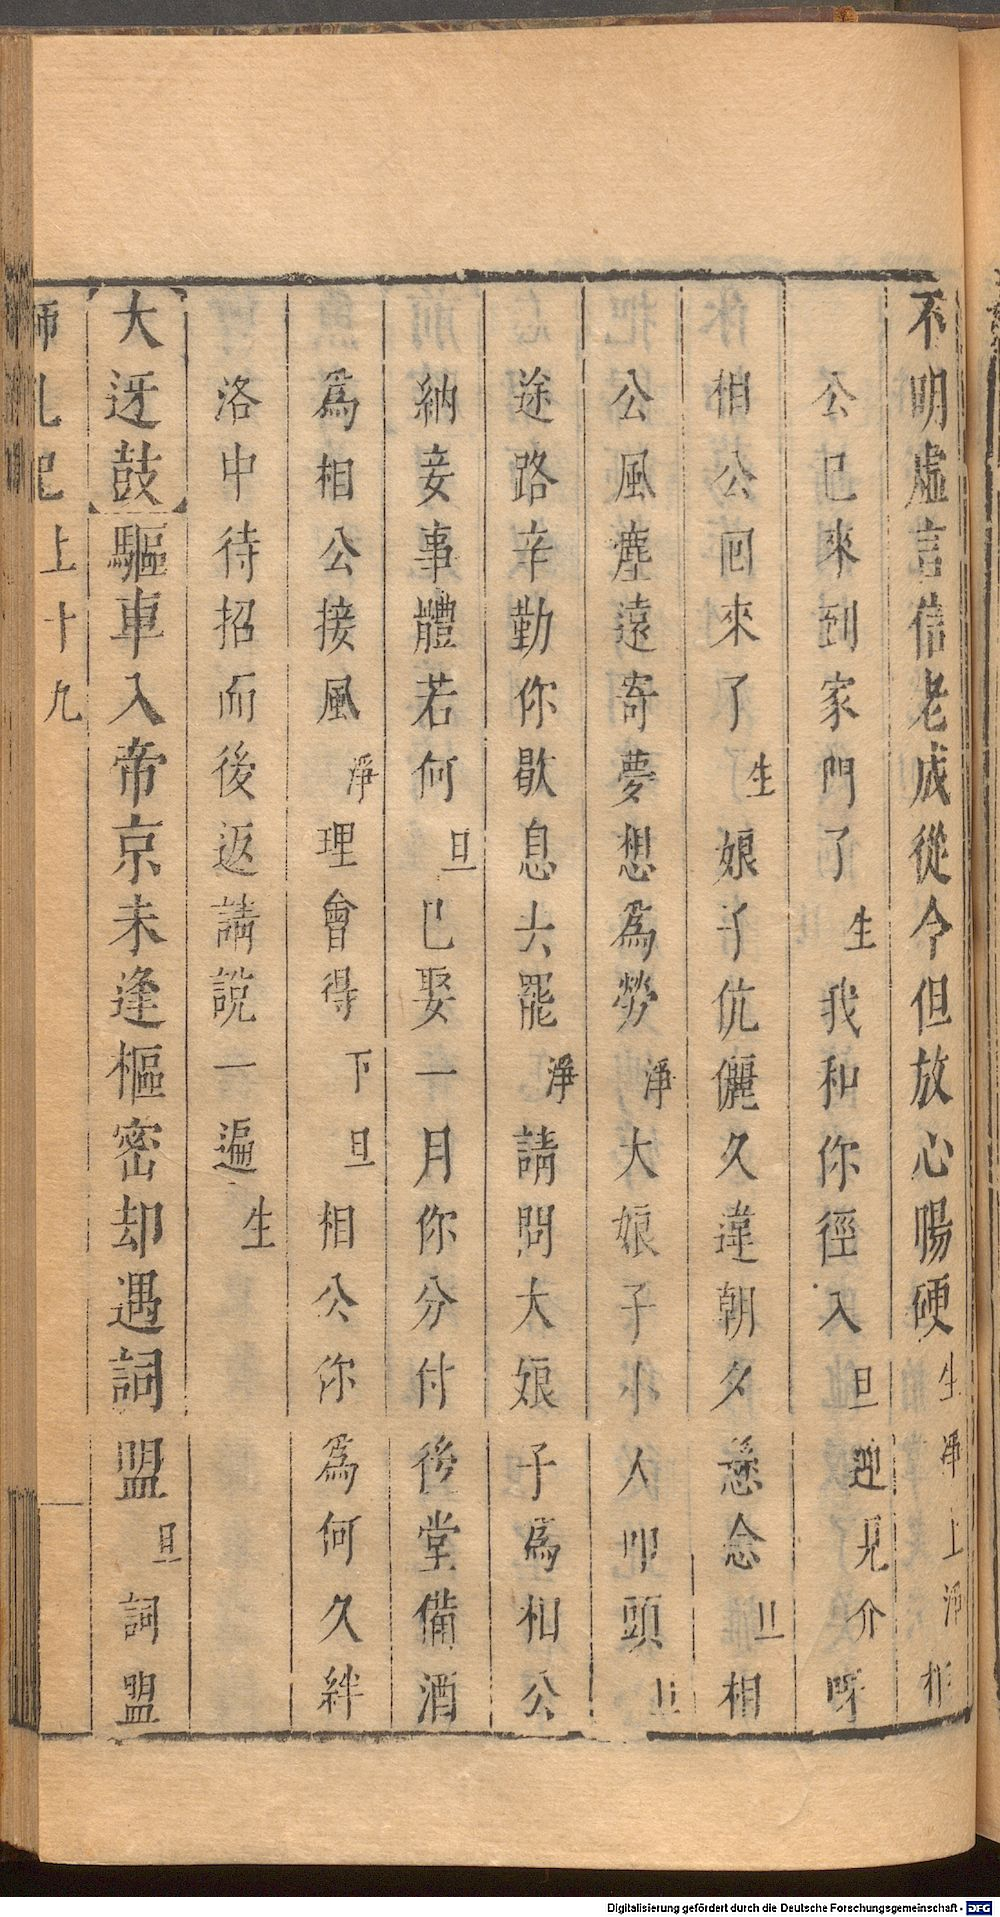 不明虛言信老成從今但放心腸硬生淨上淨相
公已來到家門了生我和你徑入旦迎見介呀
相公回來了生娘子伉儷久違朝夕懸念旦相
公風塵遠寄夢想為勞淨大娘子小人叩頭旦
途路辛勤你歇息去罷淨請問大娘子為相公
納妾事體若何旦已娶一月你分付後堂備酒
為相公接風淨理會得下旦相公你為何久絆
洛中待招而後返請說一遍生
大迓鼓驅車入帝京未逢樞密却遇詞盟旦詞盟
師 記 上 十九
Digitalisierung gefördert durch die Deutsche Forschungsgemeinschaft - DFG